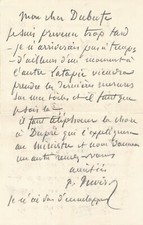 mon cher Dubufe
je suis prévenu trop tard
- je n'arriverais pas à temps
- d'ailleurs d'un moment à
l'autre Latapie viendra
prendre les dernières mesures
sur nos toiles et il faut que
je sois là
il faut téléphoner la chose
à Dupré qui l'expliquera
au ministre et nous donnera
un autre rendez-vous
amitiés
je n'ai pas d'enveloppe